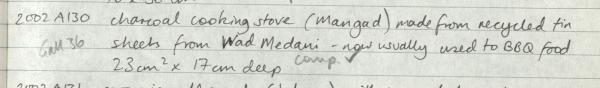 2002 A130 charcoal cooking stove (mangad) made from recycled tin
sheets from Wad Medani - now usually used to BBQ food
23cm² x 17cm deep comp. ✓